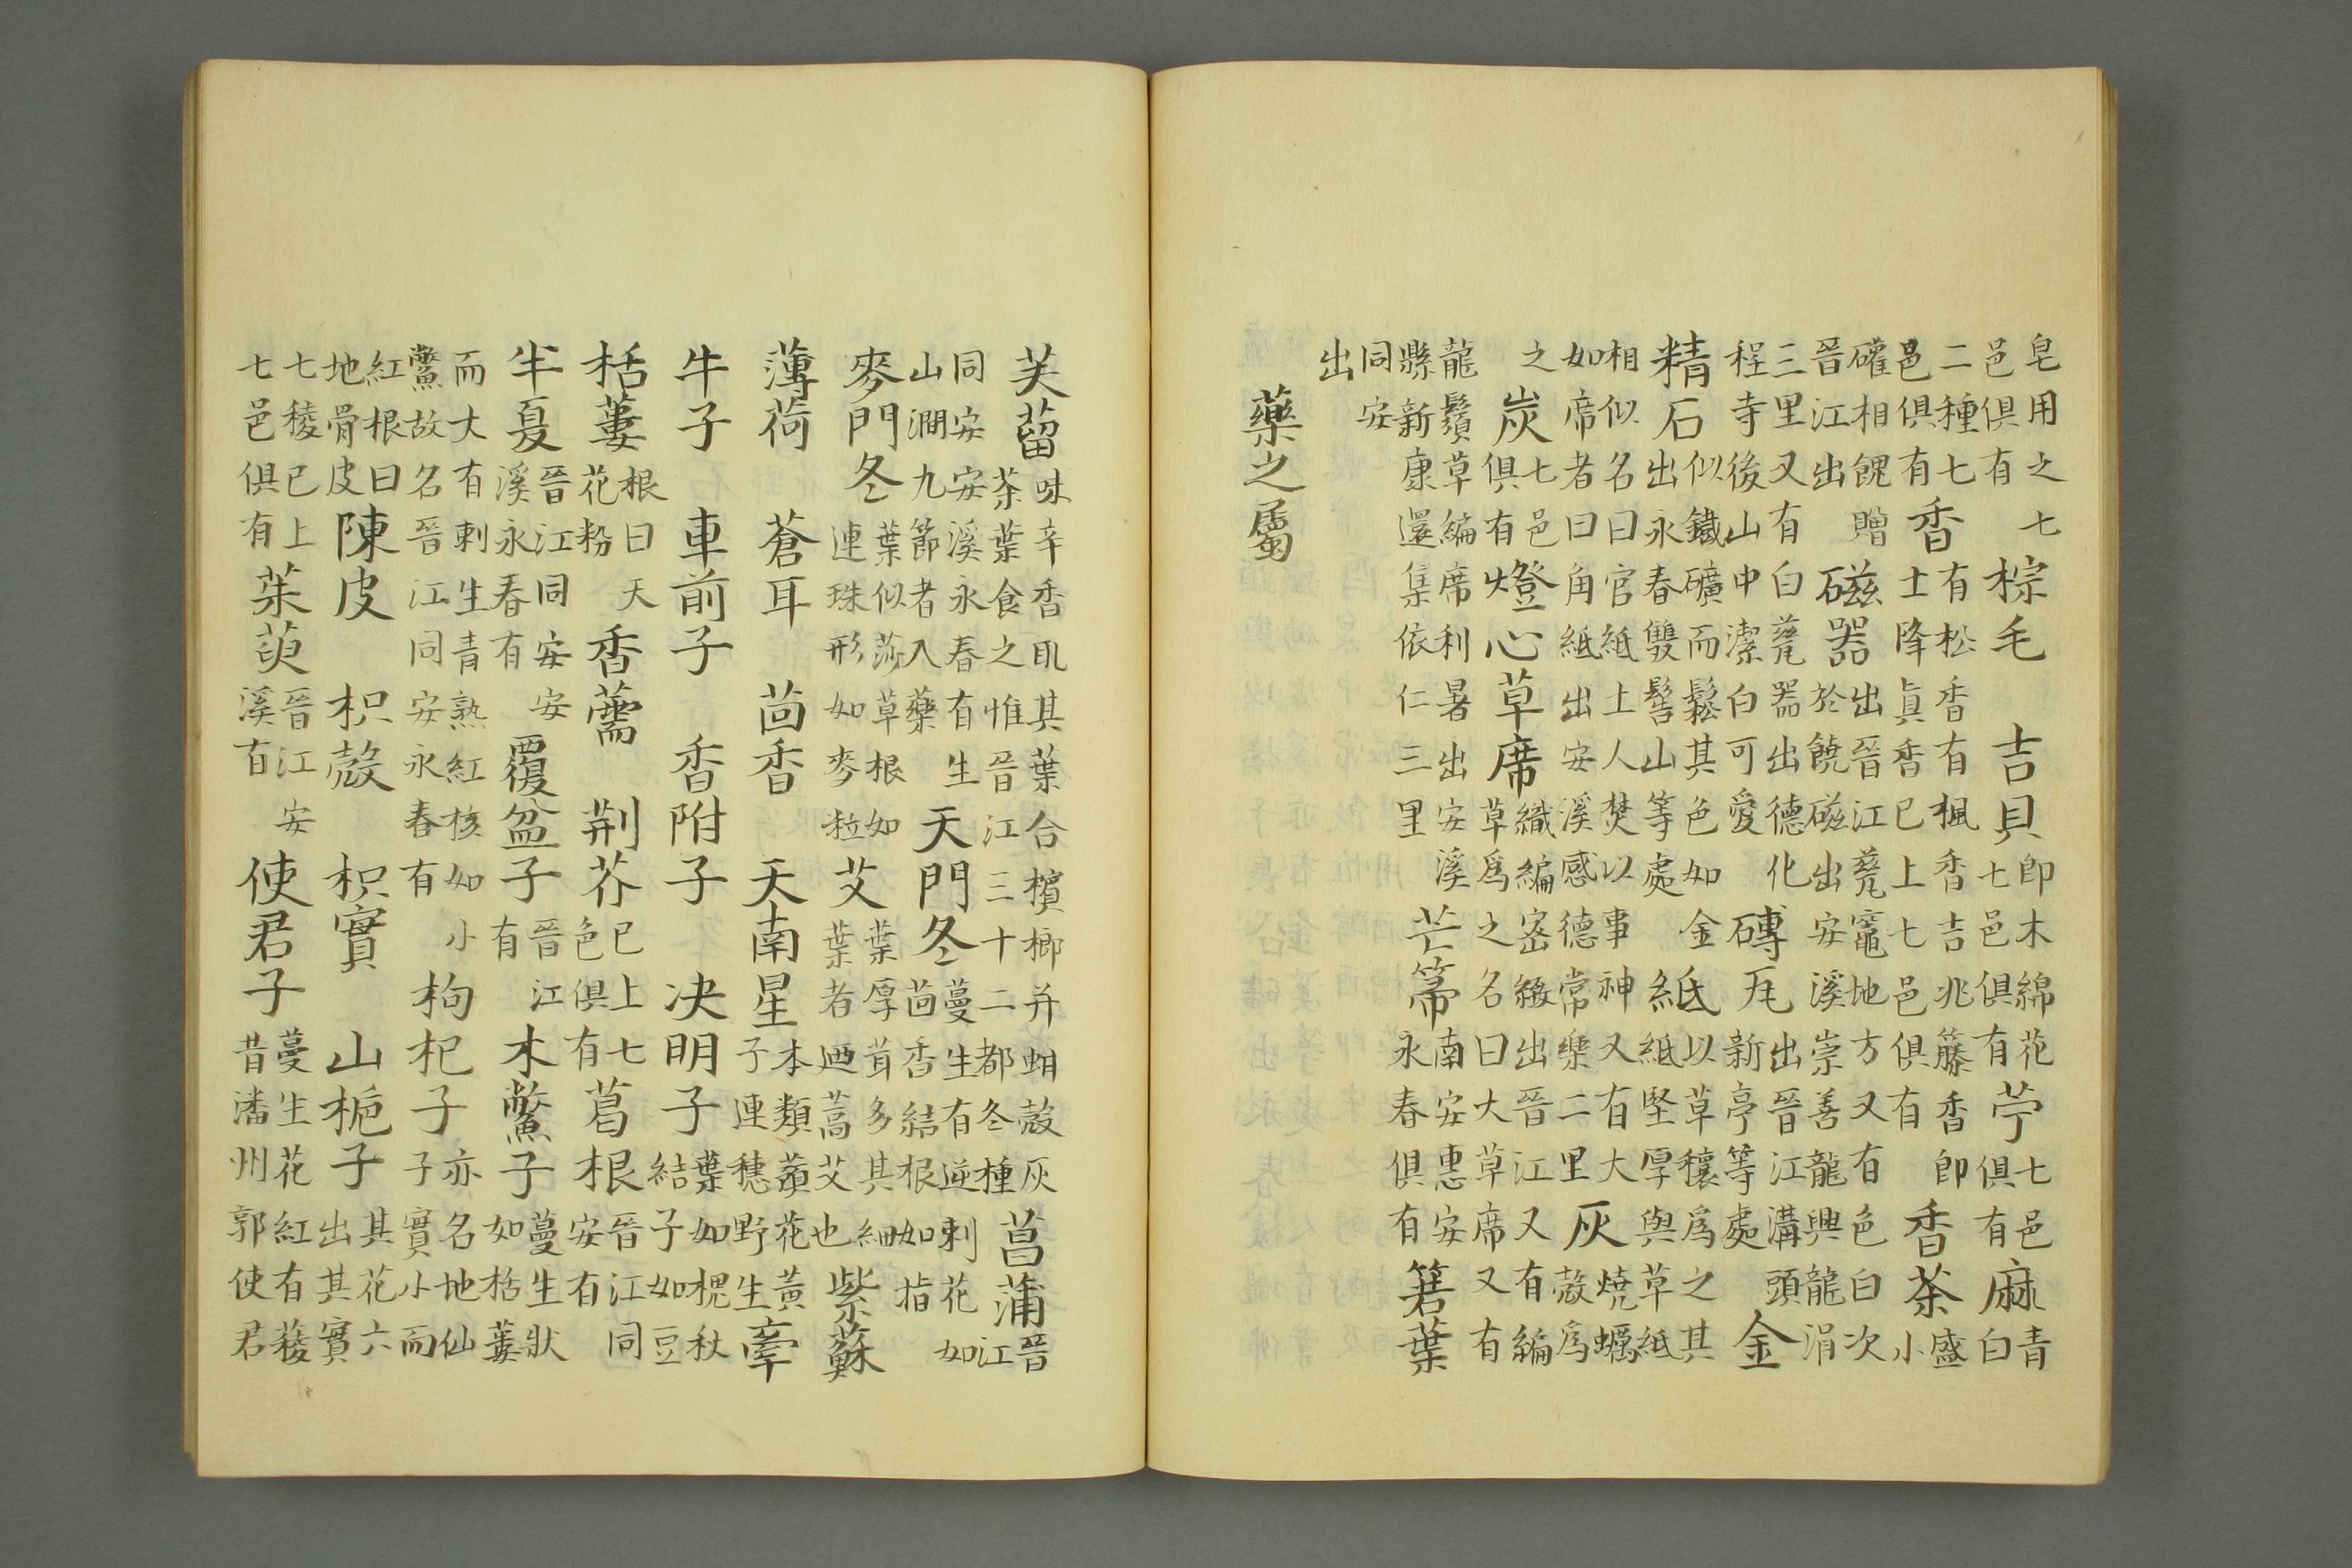 皂用之七邑俱有棕毛 吉貝即木綿花七邑俱有苧七邑俱有麻青白
二種七邑俱有香有松香有楓香吉兆藤香即士降真香已上七邑俱有香茶盛小
確相餽贈晉江出磁器出晉江甆竈地方又有色白次於饒磁出安溪崇善龍興龍涓
三里又有白甆器出德化程寺後山中潔白可愛磚瓦出晉江溝頭新亭等處金
精石似鐵礦而鬆其色如金出永春雙髻山等處紙以草穰為之其紙堅厚與草紙
相似名曰官紙上人焚以事神又有大如席者曰角紙出安溪感德常樂二里灰燒蠣殼為
之炭七邑俱有燈心草席織編密緻出晉江又有編草為之名曰大草席又有
龍鬚草編席利暑出安溪縣新康還集依仁三里芒箒南安惠安永春俱有箬葉
同安出
藥之屬
芙蒥味辛香其葉合檳榔并蚶殼灰茶葉食之惟晉江三十二都冬種菖蒲晉江
同安安溪永春有生山澗九節者入藥天門冬蔓生有逆刺花如茴香結根如指
麥門冬葉似莎草根如連珠形如麥粒艾葉厚茸多其細葉者廼蒿艾也紫蘇
薄荷 蒼耳 茴香 天南星本類蘋花黃子連穗野生牽
牛子 車前子 香附子 决明子葉如槐秋結子如豆
栝蔞根曰天花粉香薷 荆芥已上七色俱有葛根晉江同安有
半夏晉江同安安溪永春有覆盆子晉江有木鱉子蔓生狀如栝蔞
而大有刺生青熟紅核如小鱉故名晉江同安永春有枸杞子亦名地仙子實小而
紅根曰地骨皮陳皮 枳殼 枳實 山梔子其花六出其實
七稜已上七邑俱有茱萸晉江安溪有使君子蔓生花紅有稜昔潘州郭使君